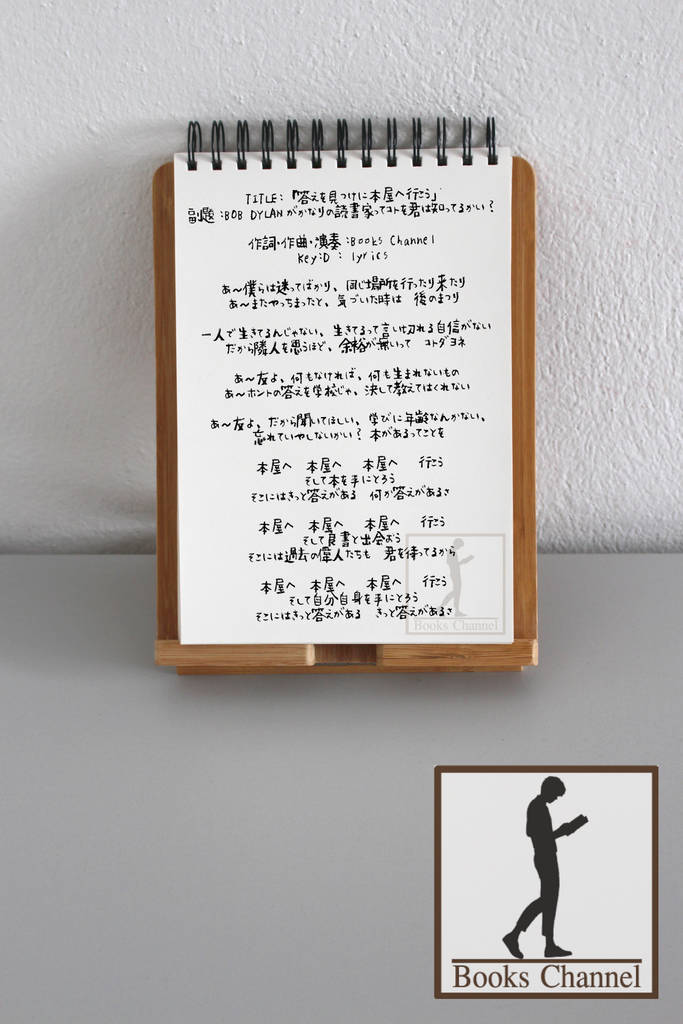 TITLE:「答えを見つけに本屋へ行こう」
副題:BOB DYLANがかなりの読書家ってコトを君は知ってるかい?
作詞・作曲・演奏:Books Channel
Key:D : lyrics
あ〜僕らは迷ってばかり、同じ場所を行ったり来たり
あ〜またやっちまったと、気づいた時は 後のまつり
一人で生きてるんじゃない、生きてるって言い切れる自信がない
だから隣人を思うほど、余裕が無いって コトダヨネ
あ〜友よ、何もなければ、何も生まれないもの
あ〜ホントの答えを学校じゃ、決して教えてはくれない
あ〜友よ、だから聞いてほしい、学びに年齢なんかない、
忘れていやしないかい? 本があるってことを
本屋へ 本屋へ 本屋へ 行こう
そして本を手にとろう
そこにはきっと答えがある 何か答えがあるさ
本屋へ 本屋へ 本屋へ 行こう
そして良書と出会おう
そこには過去の偉人たちも 君を待ってるから
本屋へ 本屋へ 本屋へ 行こう
そして自分自身を手にとろう
そこにはきっと答えがある きっと答えがあるさ
Books Channel
Books Channel